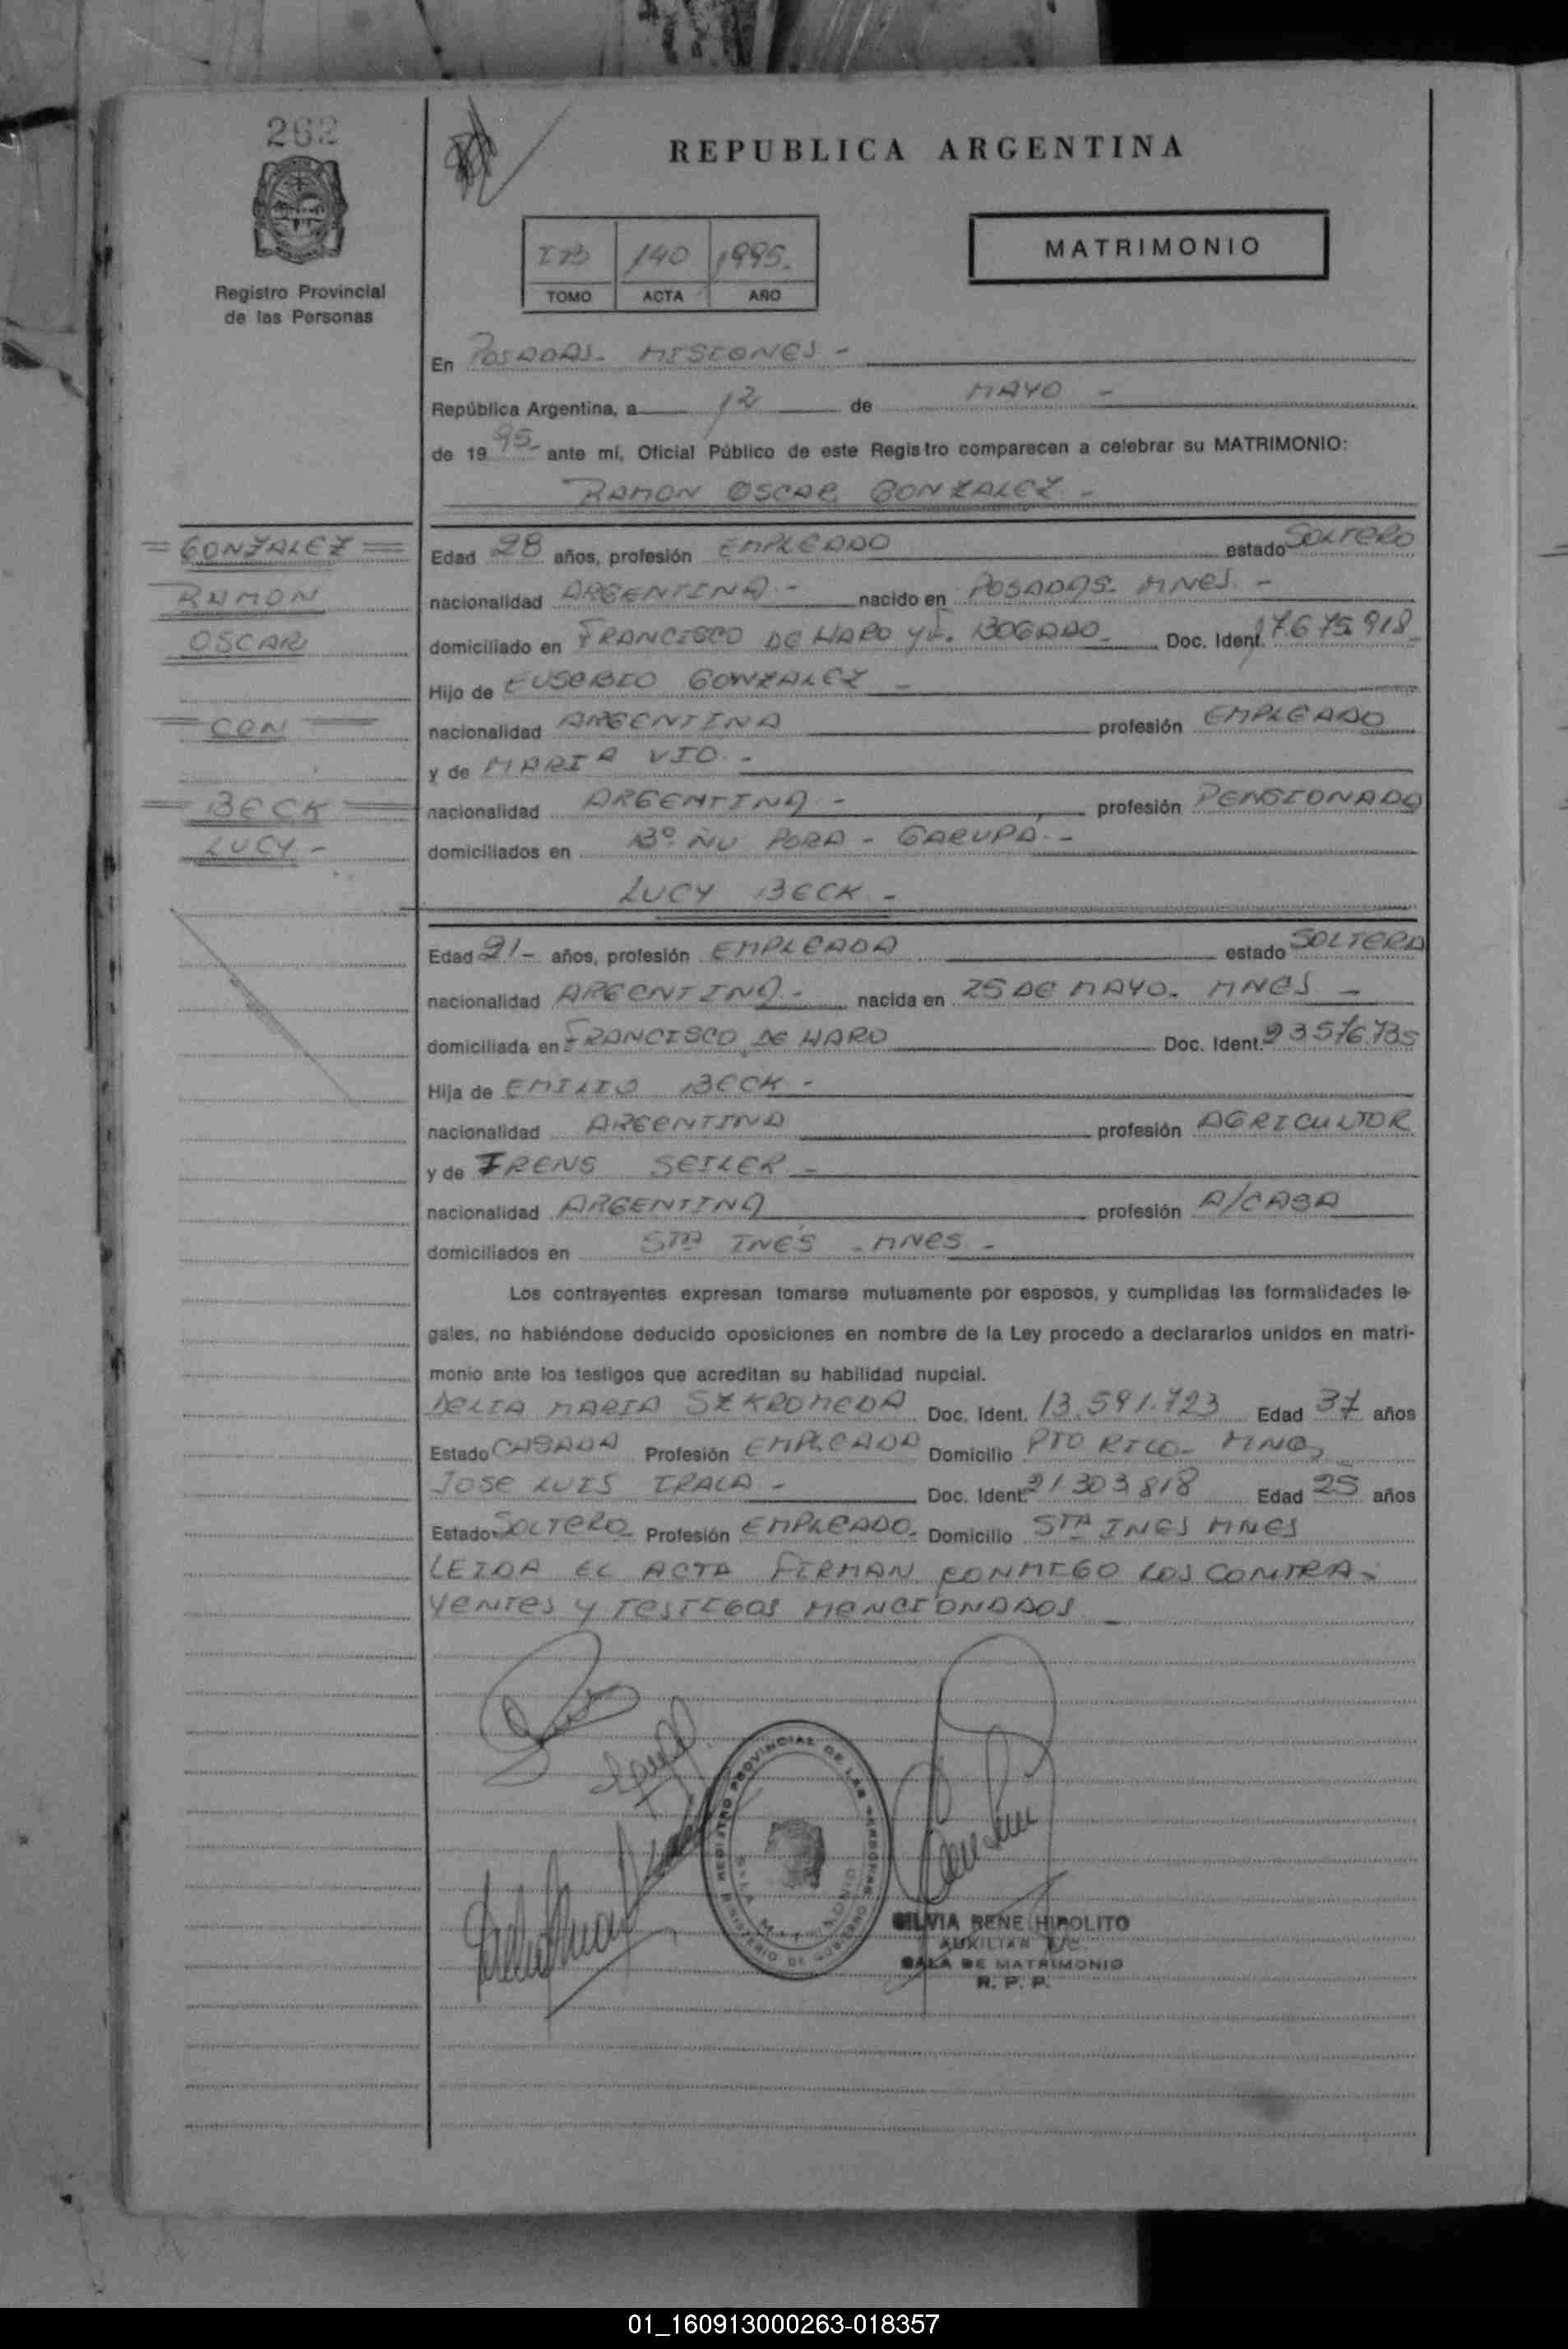 262
REPUBLICA ARGENTINA
MATRIMONIO
IB 140 1995.
TOMO ACTA AÑO
Registro Provincial
de las Personas
En POSADAS. MISIONES -
República Argentina, a 12 de MAYO -
de 19 95- ante mí, Oficial Público de este Registro comparecen a celebrar su MATRIMONIO:
RAMON OSCAR GONZALEZ -
= GONZALEZ =
RAMON
OSCAR
= CON =
= BECK =
LUCY -
Edad 28 años, profesión EMPLEADO estado SOLTERO
nacionalidad ARGENTINA - nacido en POSADAS. MNES. -
domiciliado en FRANCISCO DE HARO y L. BOGADO. Doc. Ident. 17.675.918
Hijo de EUSEBIO GONZALEZ -
nacionalidad ARGENTINA profesión EMPLEADO
y de MARIA VIO. -
nacionalidad ARGENTINA - profesión PENSIONADA
domiciliados en Bº ÑU PORA - GARUPÁ. -
LUCY BECK -
Edad 21- años, profesión EMPLEADA estado SOLTERA
nacionalidad ARGENTINA. - nacida en 25 DE MAYO. MNES -
domiciliada en FRANCISCO DE HARO Doc. Ident. 23576.735
Hija de EMILIO BECK -
nacionalidad ARGENTINA profesión AGRICULTOR
y de IRENS SEILER -
nacionalidad ARGENTINA profesión A/CASA
domiciliados en STA INES - MNES -
Los contrayentes expresan tomarse mutuamente por esposos, y cumplidas las formalidades le-
gales, no habiéndose deducido oposiciones en nombre de la Ley procedo a declararlos unidos en matri-
monio ante los testigos que acreditan su habilidad nupcial.
DELIA MARIA SZKROMEDA Doc. Ident. 13.591.723 Edad 37 años
Estado CASADA Profesión EMPLEADA Domicilio PTO RICO- MNES
JOSE LUIS IRALA - Doc. Ident. 21303818 Edad 25 años
Estado SOLTERO- Profesión EMPLEADO. Domicilio STA INES MNES
LEIDA EL ACTA FIRMAN CONMIGO LOS CONTRA-
YENTES Y TESTIGOS MENCIONADOS -
REGISTRO PROVINCIAL DE LAS PERSONAS
SALA MATRIMONIO
MINISTERIO DE GOBIERNO
SILVIA RENE HIPOLITO
AUXILIAR
SALA DE MATRIMONIO
R. P. P.
01_160913000263-018357